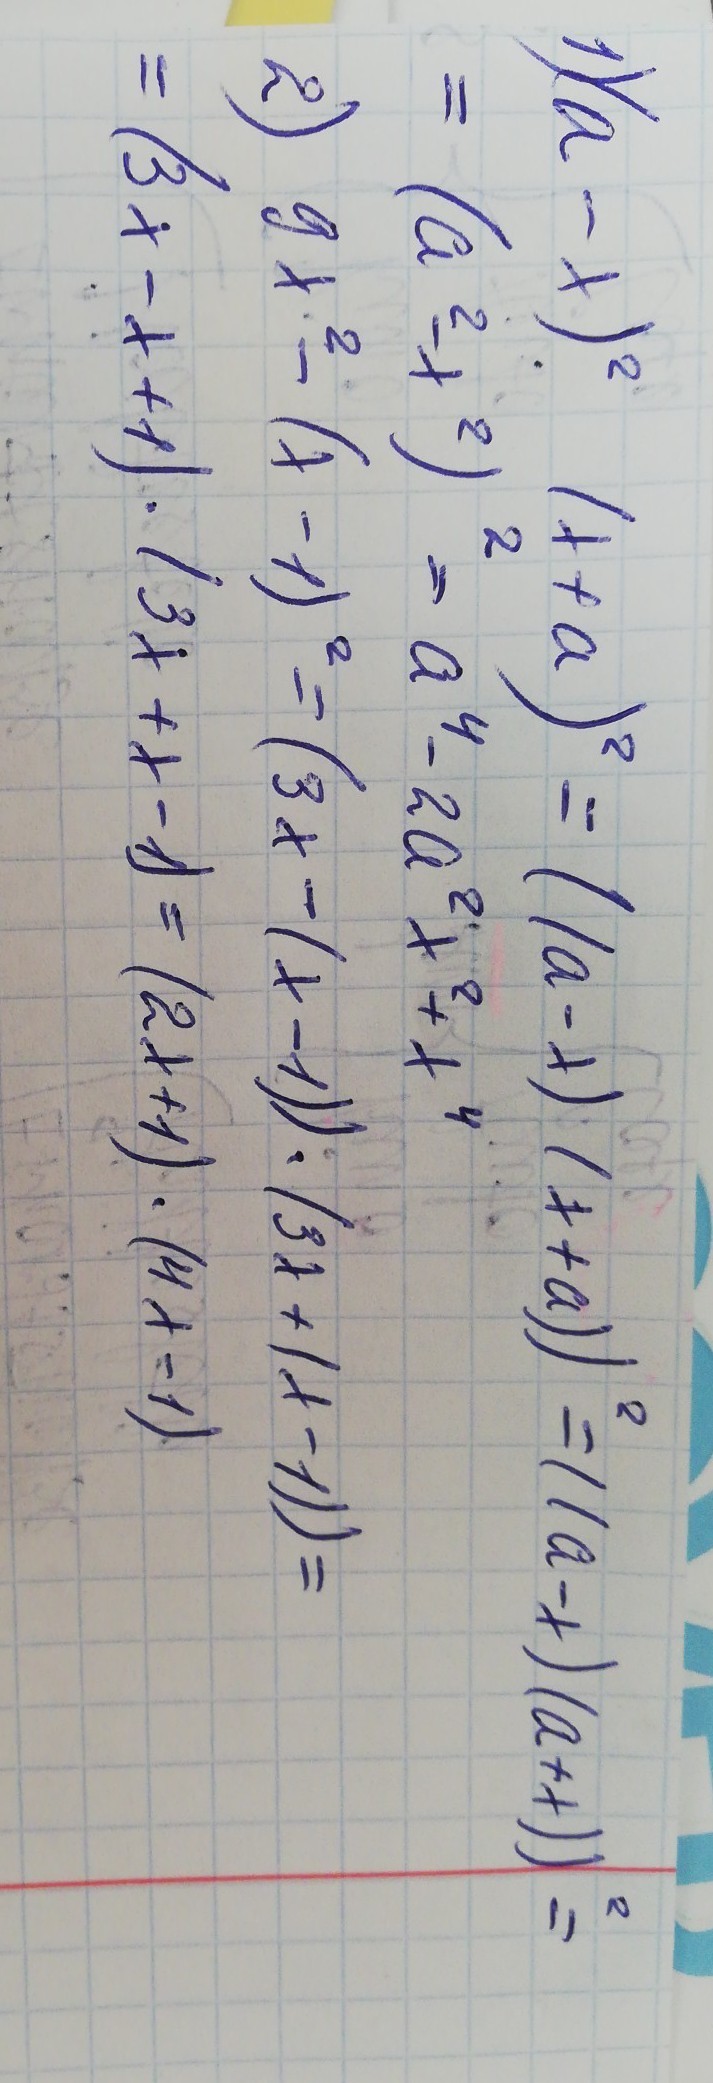 1) (a - x)² (x + a)² = ((a - x) (x + a))² = ((a - x) (a + x))² =
= (a² - x²)² = a⁴ - 2a²x² + x⁴
2) 9x² - (x - 1)² = (3x - (x - 1)) · (3x + (x - 1)) =
= (3x - x + 1) · (3x + x - 1) = (2x + 1) · (4x - 1)